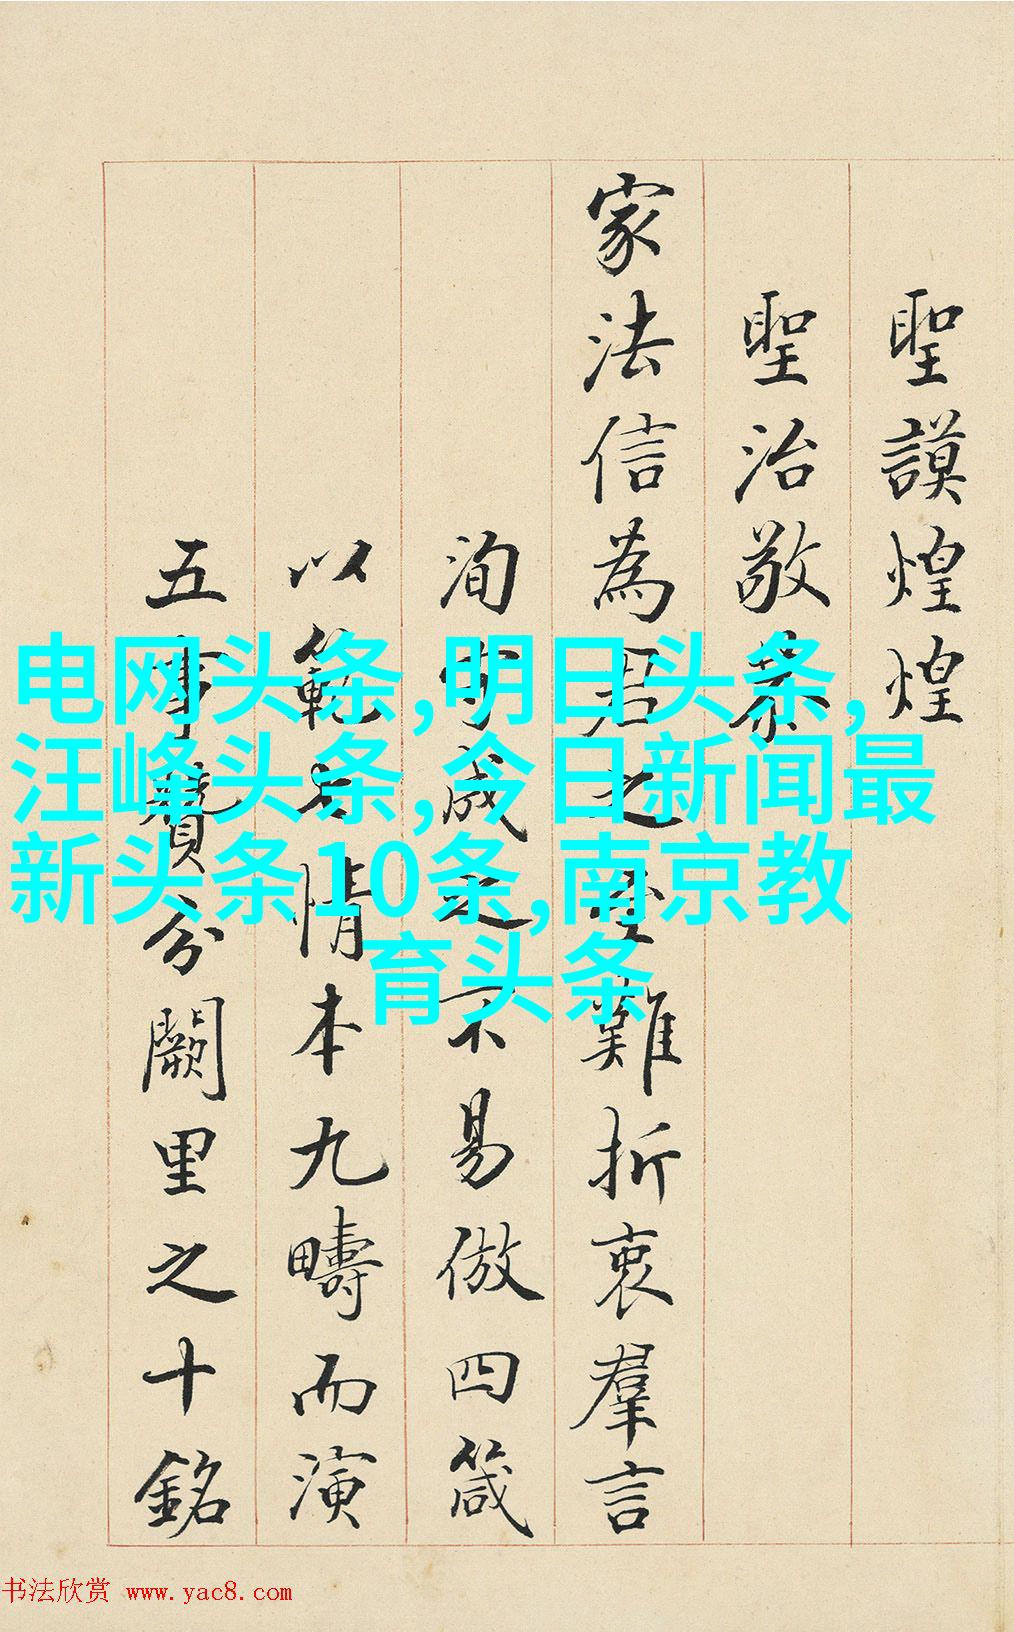 聖謨煌煌
聖治敬慕
家法信為君之難折衷羣言
洵守成之不易倣四箴
以範七情本九疇而演
五事贊分闕里之十銘
电网头条,明日头条,
汪峰头条,今日新闻最
新头条10条,南京教
育头条
书法欣赏 www.yac8.com